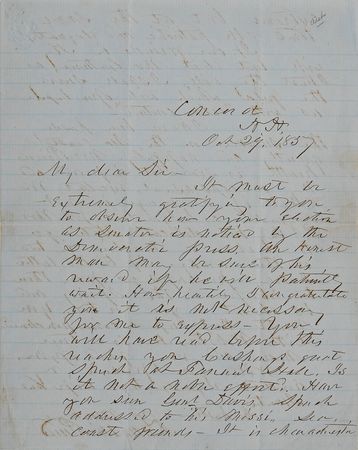 Concord
N H
Oct 29. 1857
My dear Sir—
It must be
extremely gratifying to you
to observe how your election
as Senator is noticed by the
Democratic press. An honest
man may be sure of his
reward if he will patiently
wait. How heartily I congratulate
you it is not necessary
for me to express— You
will have read before this
reaches you Cushing's great
speech at Faneuil Hall. Is
it not a noble effort. Have
you seen Genl Davis' Speech
addressed to his Missi. Sea
coast friends— It is characteristic